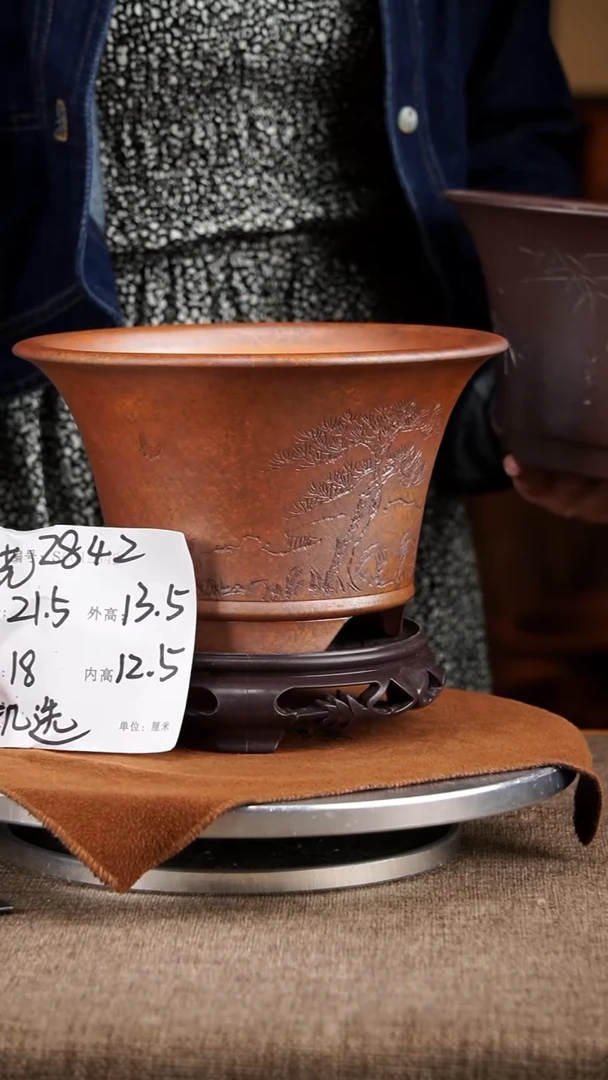 2842
21.5 外高 13.5
18 内高 12.5
机选
单位：厘米